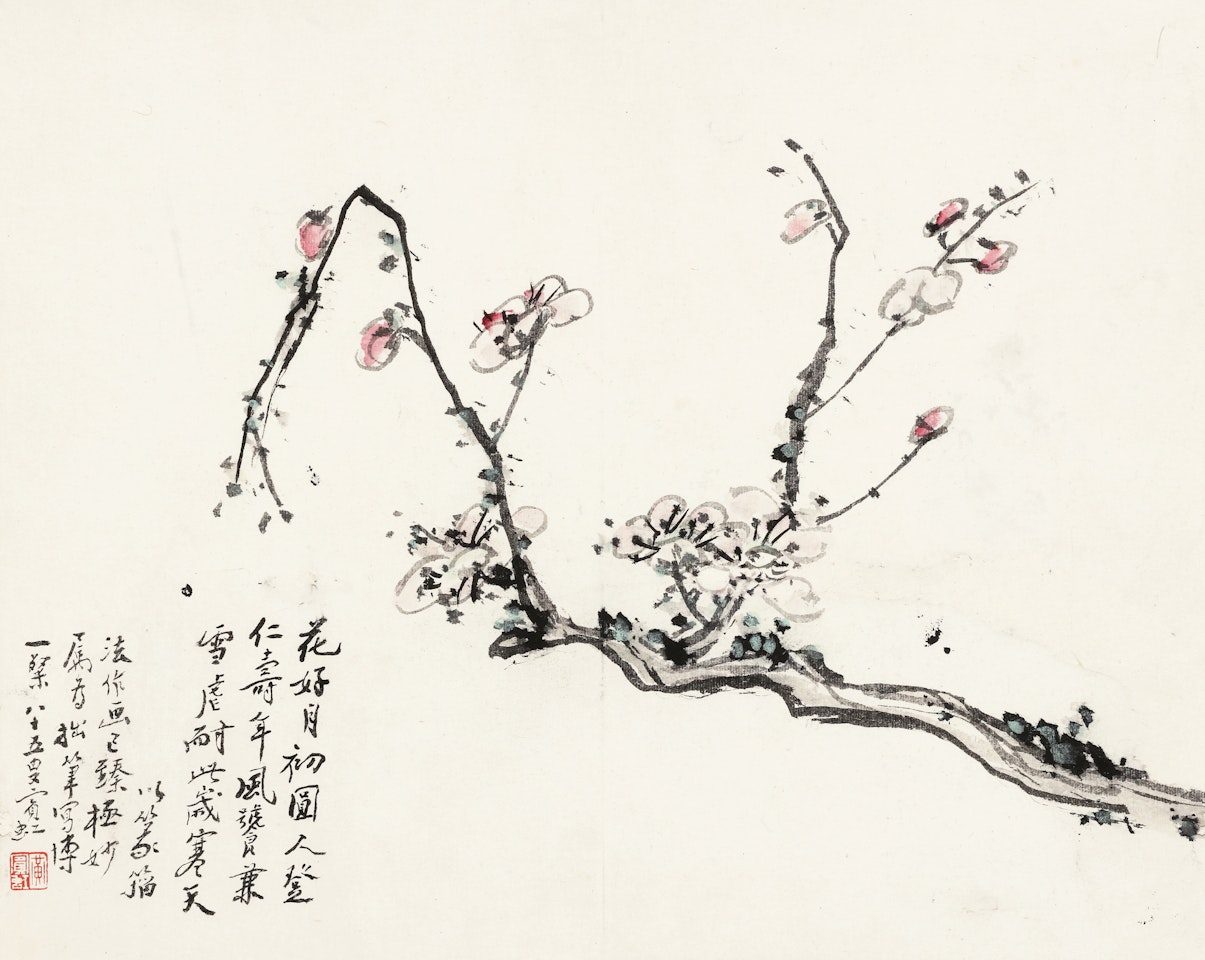 花好月初圓人登
仁壽年風饕兼
雪虐耐此歲寒天
以篆籀
法作画已臻極妙
属为拙筆寫博
一粲八十五叟賓虹